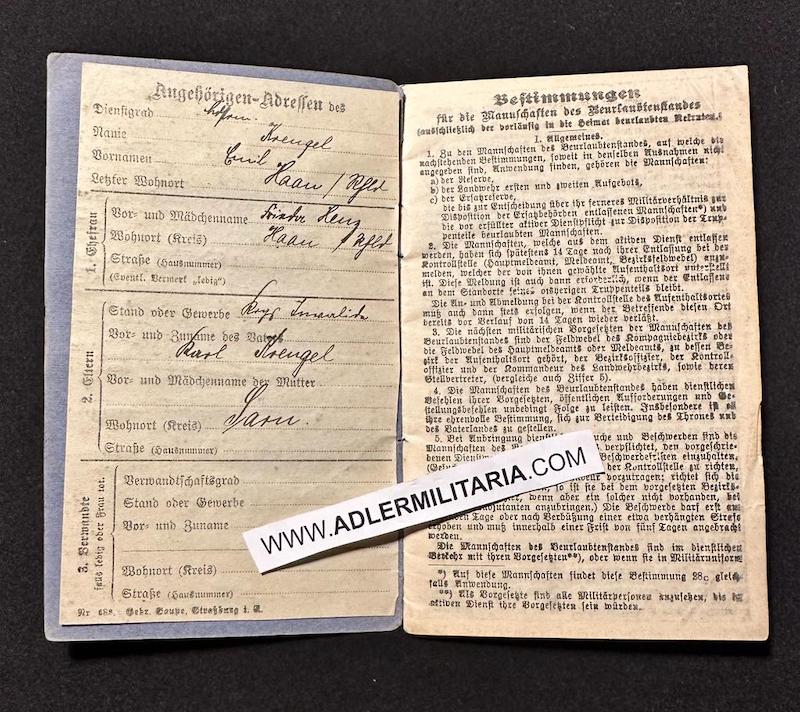 Angehörigen-Adressen des
Dienstgrad
Name Krengel
Vornamen Emil
Letzter Wohnort Haan / Rhld
1. Ehefrau
Vor- und Mädchenname Frieda
Wohnort (Kreis) Haan / Rhld
Straße (Hausnummer)
(Eventl. Vermerk „ledig")
2. Eltern
Stand oder Gewerbe Invalide
Vor- und Zuname des Vaters
Karl Krengel
Vor- und Mädchenname der Mutter
Wohnort (Kreis)
Straße (Hausnummer)
3. Verwandte
falls ledig oder Frau tot.
Verwandtschaftsgrad
Stand oder Gewerbe
Vor- und Zuname
Wohnort (Kreis)
Straße (Hausnummer)
Nr 688. Gebr. Soupe, Straßburg i. E.
Bestimmungen
für die Mannschaften des Beurlaubtenstandes
(ausschließlich der vorläufig in die Heimat beurlaubten Rekruten.)
I. Allgemeines.
1. Zu den Mannschaften des Beurlaubtenstandes, auf welche die
nachstehenden Bestimmungen, soweit in denselben Ausnahmen nicht
angegeben sind, Anwendung finden, gehören die Mannschaften:
a) der Reserve,
b) der Landwehr ersten und zweiten Aufgebots,
c) der Ersatzreserve,
die bis zur Entscheidung über ihr ferneres Militärverhältnis zur
Disposition der Ersatzbehörden entlassenen Mannschaften*) und
die vor erfüllter aktiver Dienstpflicht zur Disposition der Trup-
penteile beurlaubten Mannschaften.
2. Die Mannschaften, welche aus dem aktiven Dienst entlassen
werden, haben sich spätestens 14 Tage nach ihrer Entlassung bei der
Kontrollstelle (Hauptmeldeamt, Meldeamt, Bezirksfeldwebel) anzu-
melden, welcher der von ihnen gewählte Aufenthaltsort unterstellt
ist. Diese Meldung ist auch dann erforderlich, wenn der Entlassene
an dem Standorte seines bisherigen Truppenteils bleibt.
Die An- und Abmeldung bei der Kontrollstelle des Aufenthaltsortes
muß auch dann stets erfolgen, wenn der Betreffende diesen Ort
bereits vor Verlauf von 14 Tagen wieder verläßt.
3. Die nächsten militärischen Vorgesetzten der Mannschaften des
Beurlaubtenstandes sind der Feldwebel des Kompagniebezirks oder
die Feldwebel des Hauptmeldeamts oder Meldeamts, zu dessen Be-
zirk der Aufenthaltsort gehört, der Bezirksoffizier, der Kontroll-
offizier und der Kommandeur des Landwehrbezirks, sowie deren
Stellvertreter, (vergleiche auch Ziffer 5).
4. Die Mannschaften des Beurlaubtenstandes haben dienstlichen
Befehlen ihrer Vorgesetzten, öffentlichen Aufforderungen und Ge-
stellungsbefehlen unbedingt Folge zu leisten. Insbesondere ist es
ihre ehrenvolle Bestimmung, sich zur Verteidigung des Thrones und
des Vaterlandes zu gestellen.
5. Bei Anbringung Gesuche und Beschwerden sind die
Mannschaften des verpflichtet, den vorgeschrie-
benen Beschwerdefristen einzuhalten,
der Kontrollstelle zu richten,
vorzutragen; richtet sich die
so ist sie bei dem vorgesetzten Bezirks-
wenn aber ein solcher nicht vorhanden, bei
anzubringen.) Die Beschwerde darf erst am
Tage oder nach Verbüßung einer etwa verhängten Strafe
erhoben und muß innerhalb einer Frist von fünf Tagen angebracht
werden.
Die Mannschaften des Beurlaubtenstandes sind im dienstlichen
Verkehr mit ihren Vorgesetzten**), oder wenn sie in Militäruniform
*) Auf diese Mannschaften findet diese Bestimmung 28c gleich-
falls Anwendung.
**) Als Vorgesetzte sind alle Militärpersonen anzusehen, die im
aktiven Dienst ihre Vorgesetzten sein würden.
WWW.ADLERMILITARIA.COM